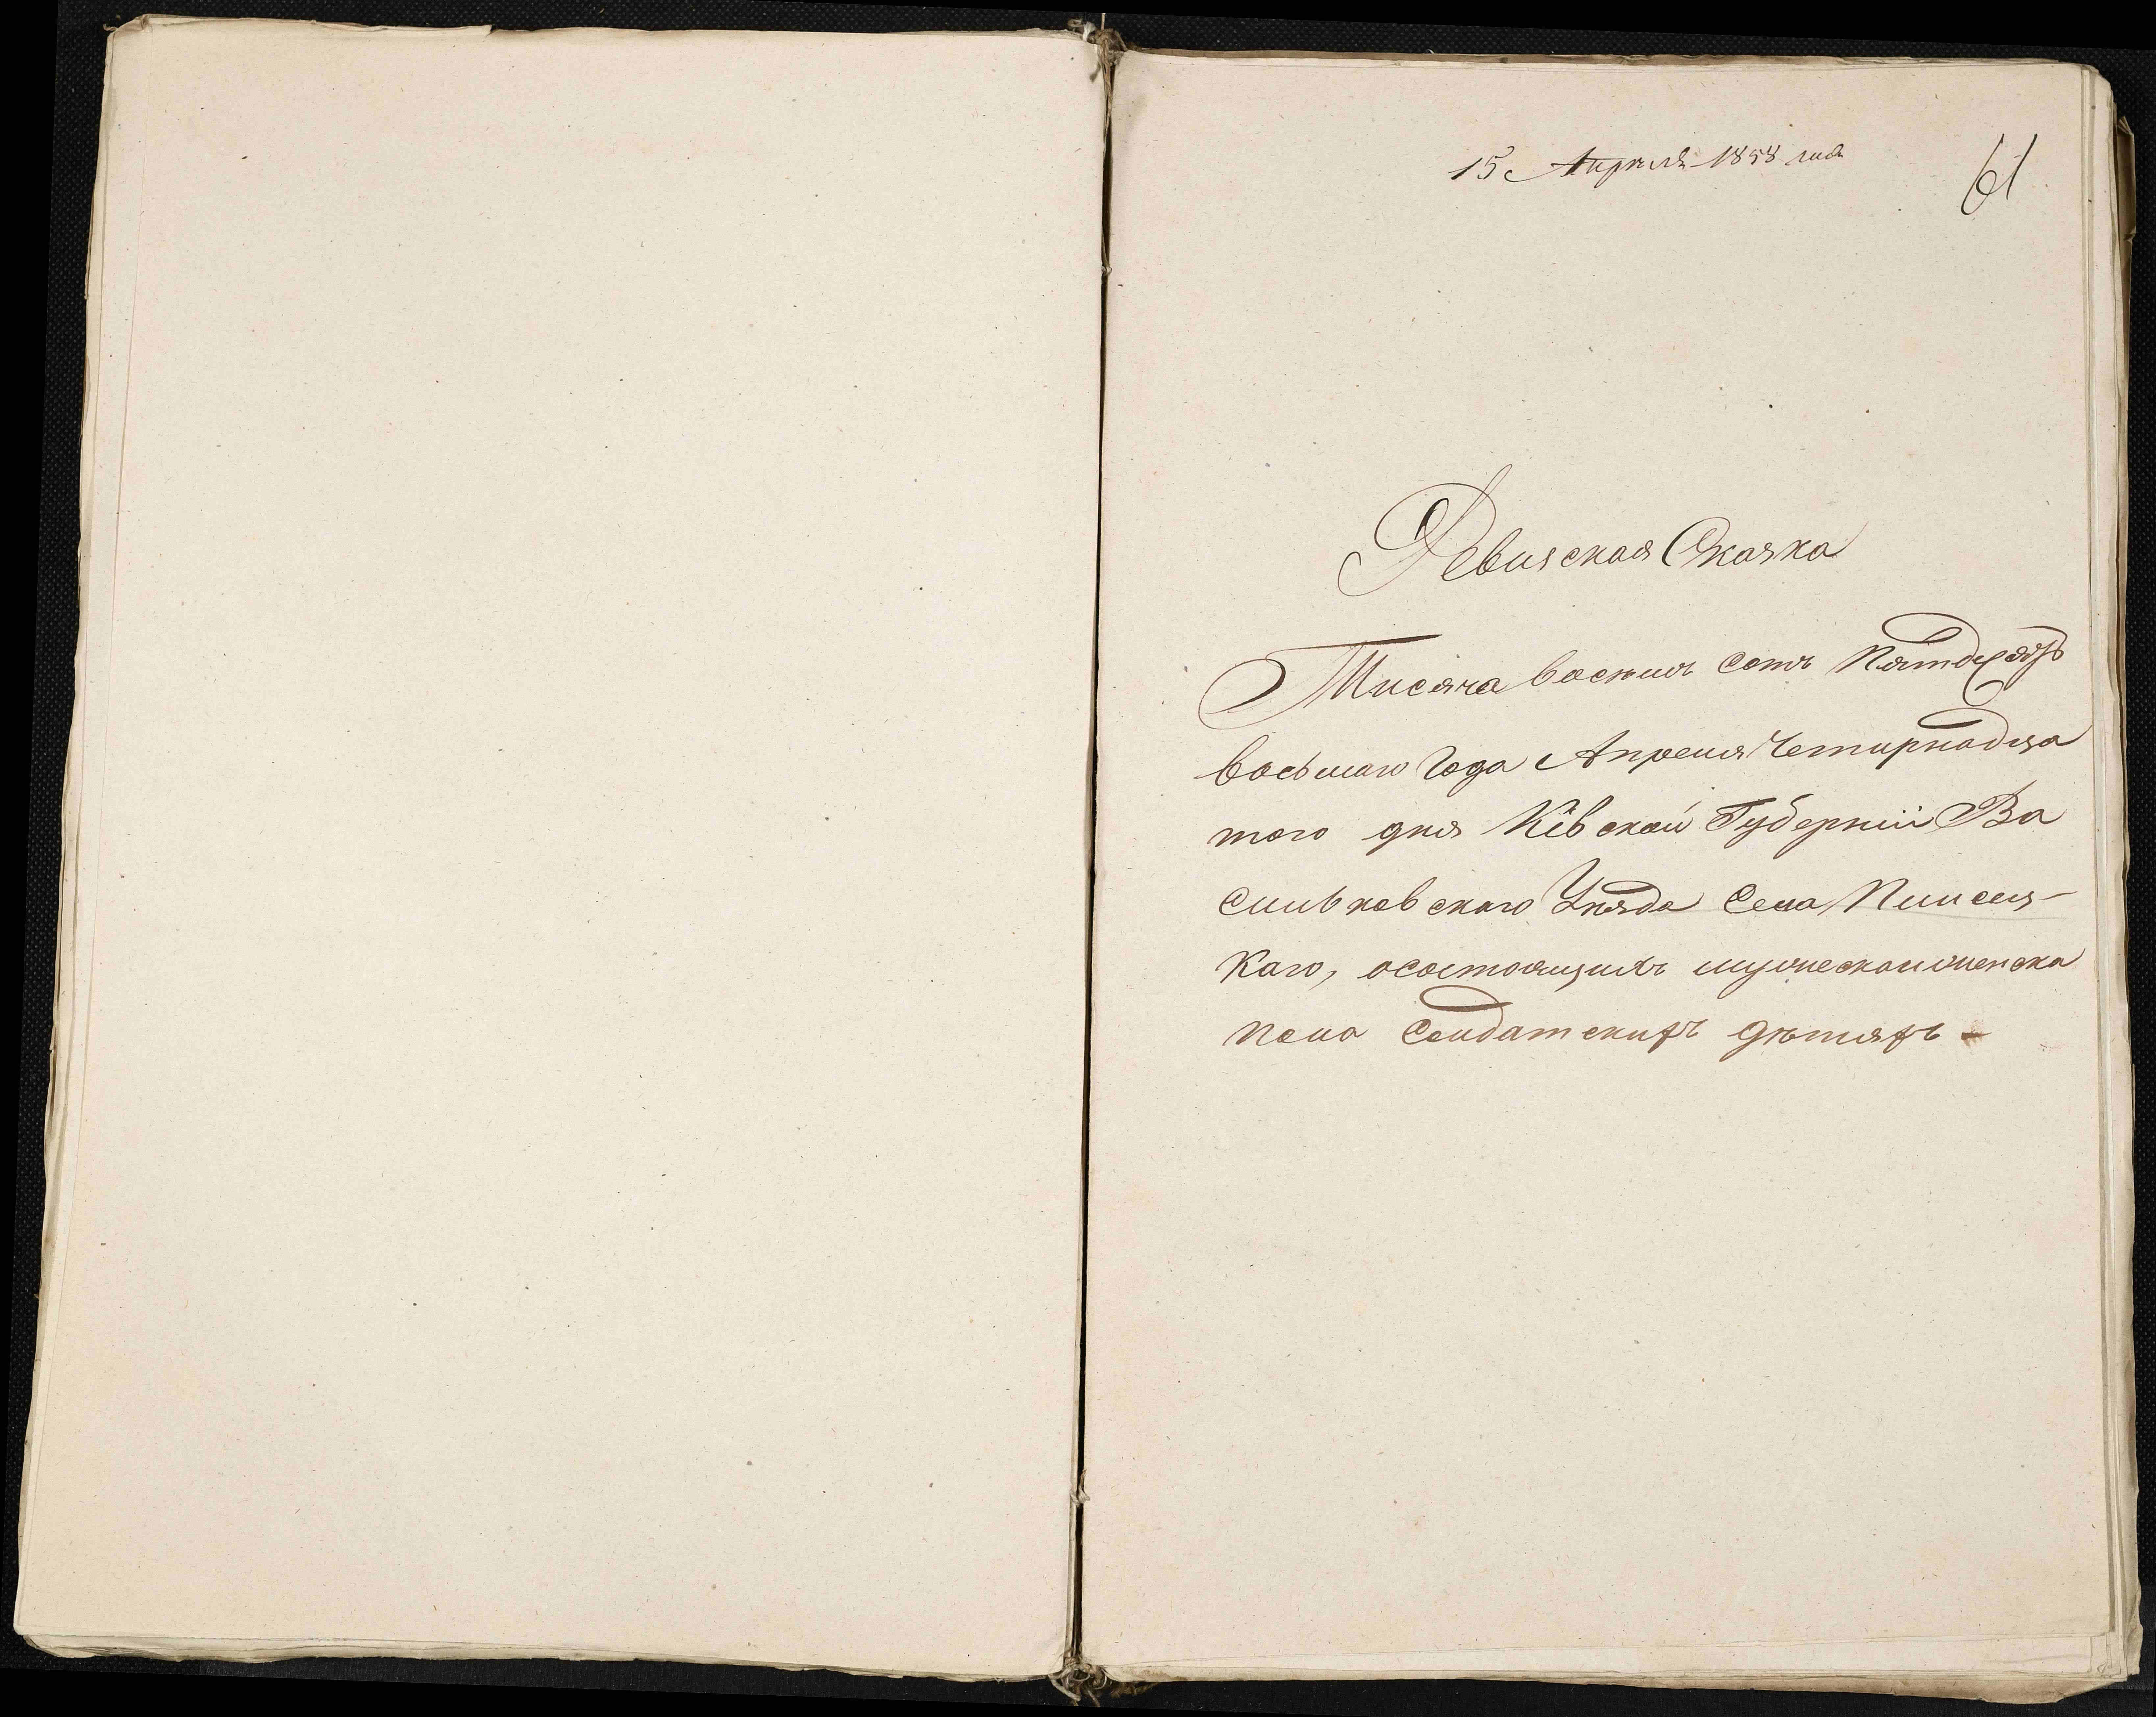 15 Апрѣля 1858 года
61
Ревизская Сказка
Тисяча восѣмъ сотъ Пятдесятъ
восьмаго Года Апреля Четирнадца
того дня Кіевской Губерніи Ва
сильковскаго Уѣзда Села
каго, осостоящихъ мужескаиженска
пола Солдатскихъ дѣтяхъ